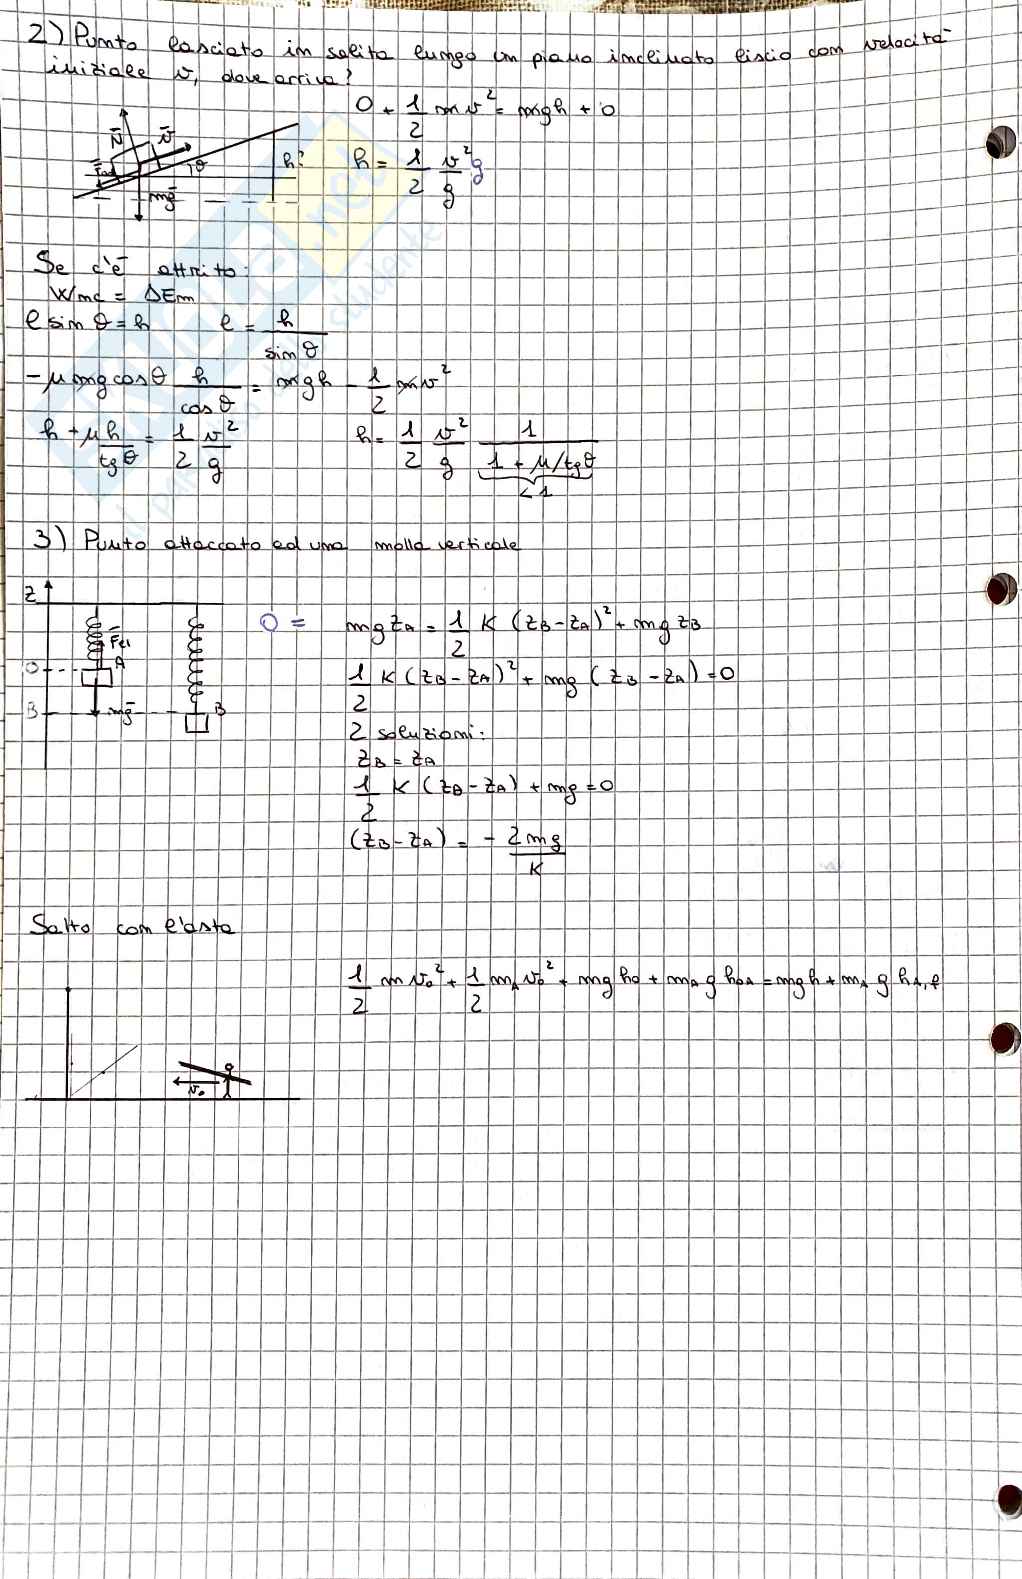 2) Punto lasciato in salita lungo un piano inclinato liscio con velocità
iniziale v, dove arriva?
0 + 1/2 mv² = mgh + 0
N̄ v̄ θ h?
mḡ
h = 1/2 v²/g g
Se c'è attrito:
Wmc = ΔEm
l sin θ = h l = h/sin θ
-μ mg cos θ h/cos θ = mgh - 1/2 mv²
h + μh/tg θ = 1/2 v²/g h = 1/2 v²/g 1/(1 + μ/tg θ)
< 1
3) Punto attaccato ad una molla verticale
z
0 = mg zA = 1/2 K (zB - zA)² + mg zB
F̄el
A
O
1/2 K (zB - zA)² + mg (zB - zA) = 0
B mḡ B
2 soluzioni:
zB = zA
1/2 K (zB - zA) + mg = 0
(zB - zA) = - 2mg/K
Salto con l'asta
1/2 m v₀² + 1/2 mA v₀² + mg h₀ + mA g h₀A = mgh + mA g hA,f
v₀